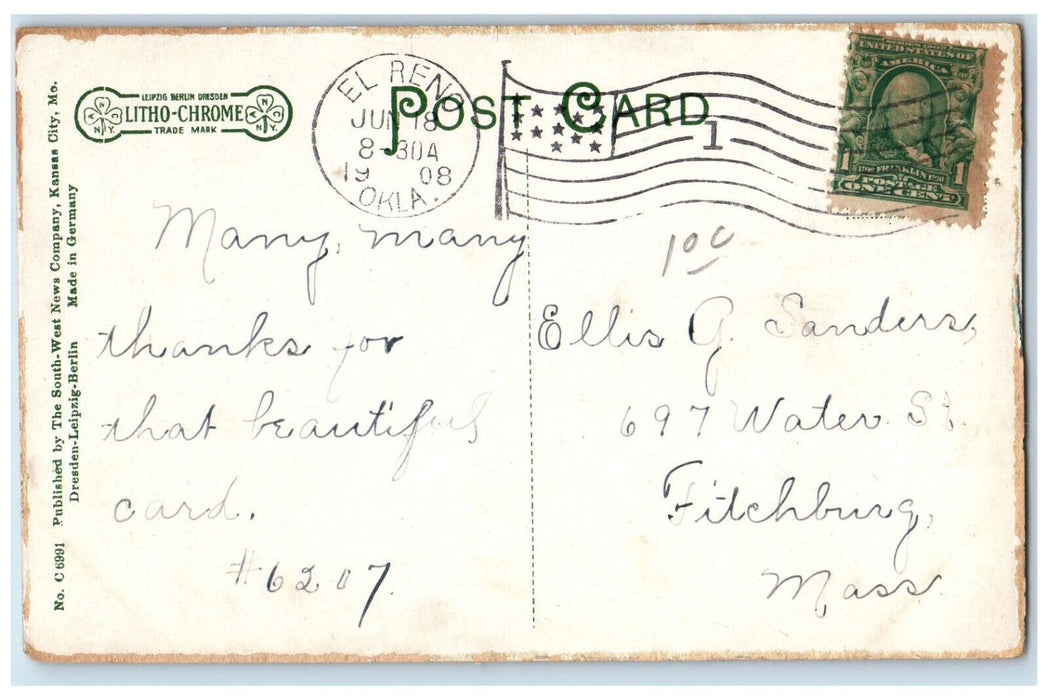 LEIPZIG BERLIN DRESDEN
LITHO-CHROME
TRADE MARK
EL RENO
JUN 18
8-30A
19 08
OKLA.
POST CARD
1
UNITED STATES OF
AMERICA
FRANKLIN
POSTAGE
1 ONE CENT 1
No. C 6991 Published by The South-West News Company, Kansas City, Mo.
Dresden-Leipzig-Berlin Made in Germany
Many, many
thanks for
that beautiful
card.
#6207.
10¢
Ellis G. Sanders,
697 Water St.
Fitchburg,
Mass.